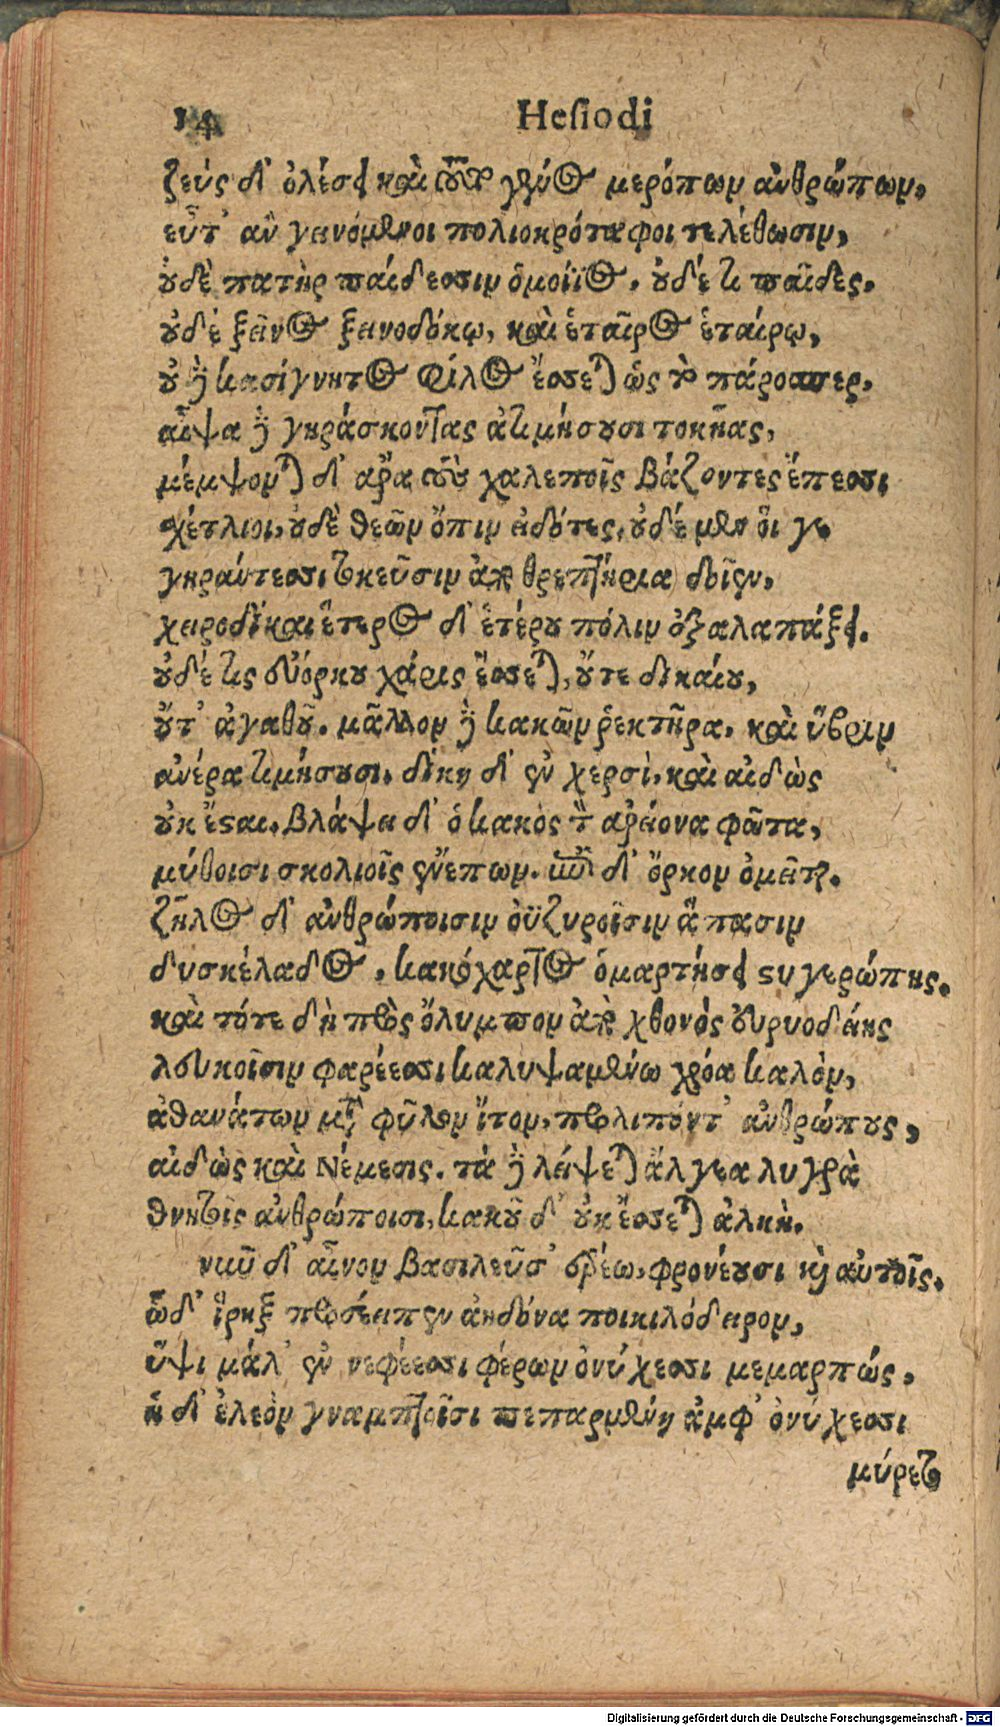 14 Hesiodi
ζεὺς δ' ὀλέσει καὶ τοῦτο γένος μερόπων ἀνθρώπων,
εὖτ' ἂν γεινόμενοι πολιοκρόταφοι τελέθωσιν,
οὐδὲ πατὴρ παίδεσσιν ὁμοίϊος, οὐδέ τι παῖδες.
οὐδὲ ξεῖνος ξεινοδόκῳ, καὶ ἑταῖρος ἑταίρῳ,
οὐδὲ κασίγνητος φίλος ἔσσεται ὡς τὸ πάροσπερ,
αἶψα δὲ γηράσκοντας ἀτιμήσουσι τοκῆας,
μέμψονται δ' ἄρα τοὺς χαλεποῖς βάζοντες ἔπεσσι
σχέτλιοι, οὐδὲ θεῶν ὄπιν εἰδότες, οὐδὲ μὲν οἵ γε
γηράντεσσι τοκεῦσιν ἀπὸ θρεπτήρια δοῖεν,
χειροδίκαι ἕτερος δ' ἑτέρου πόλιν ἐξαλαπάξει.
οὐδέ τις εὐόρκου χάρις ἔσσεται, οὔτε δικαίου,
οὔτ' ἀγαθοῦ. μᾶλλον δὲ κακῶν ῥεκτῆρα, καὶ ὕβριν
ἀνέρα τιμήσουσι, δίκη δ' ἐν χερσὶ, καὶ αἰδὼς
οὐκ ἔσται, βλάψει δ' ὁ κακὸς τὸν ἀρείονα φῶτα,
μύθοισι σκολιοῖς ἐνέπων. ἐπὶ δ' ὅρκον ὀμεῖται.
ζῆλος δ' ἀνθρώποισιν ὀϊζυροῖσιν ἅπασιν
δυσκέλαδος, κακόχαρτος ὁμαρτήσει στυγερώπης.
καὶ τότε δὴ πρὸς ὄλυμπον ἀπὸ χθονὸς εὐρυοδείης
λευκοῖσιν φαρέεσσι καλυψαμένω χρόα καλὸν,
ἀθανάτων μετὰ φῦλον ἴτον, προλιπόντ' ἀνθρώπους,
αἰδὼς καὶ Νέμεσις. τὰ δὲ λείψεται ἄλγεα λυγρὰ
θνητοῖς ἀνθρώποισι, κακοῦ δ' οὐκ ἔσσεται ἀλκὴ.
νῦν δ' αἶνον βασιλεῦσ' ἐρέω, φρονέουσι καὶ αὐτοῖς,
ὧδ' ἴρηξ προσέειπεν ἀηδόνα ποικιλόδειρον,
ὕψι μάλ' ἐν νεφέεσσι φέρων ὀνύχεσσι μεμαρπώς,
ἡ δ' ἐλεὸν γναμπτοῖσι πεπαρμένη ἀμφ' ὀνύχεσσι
μύρετο
Digitalisierung gefördert durch die Deutsche Forschungsgemeinschaft - DFG